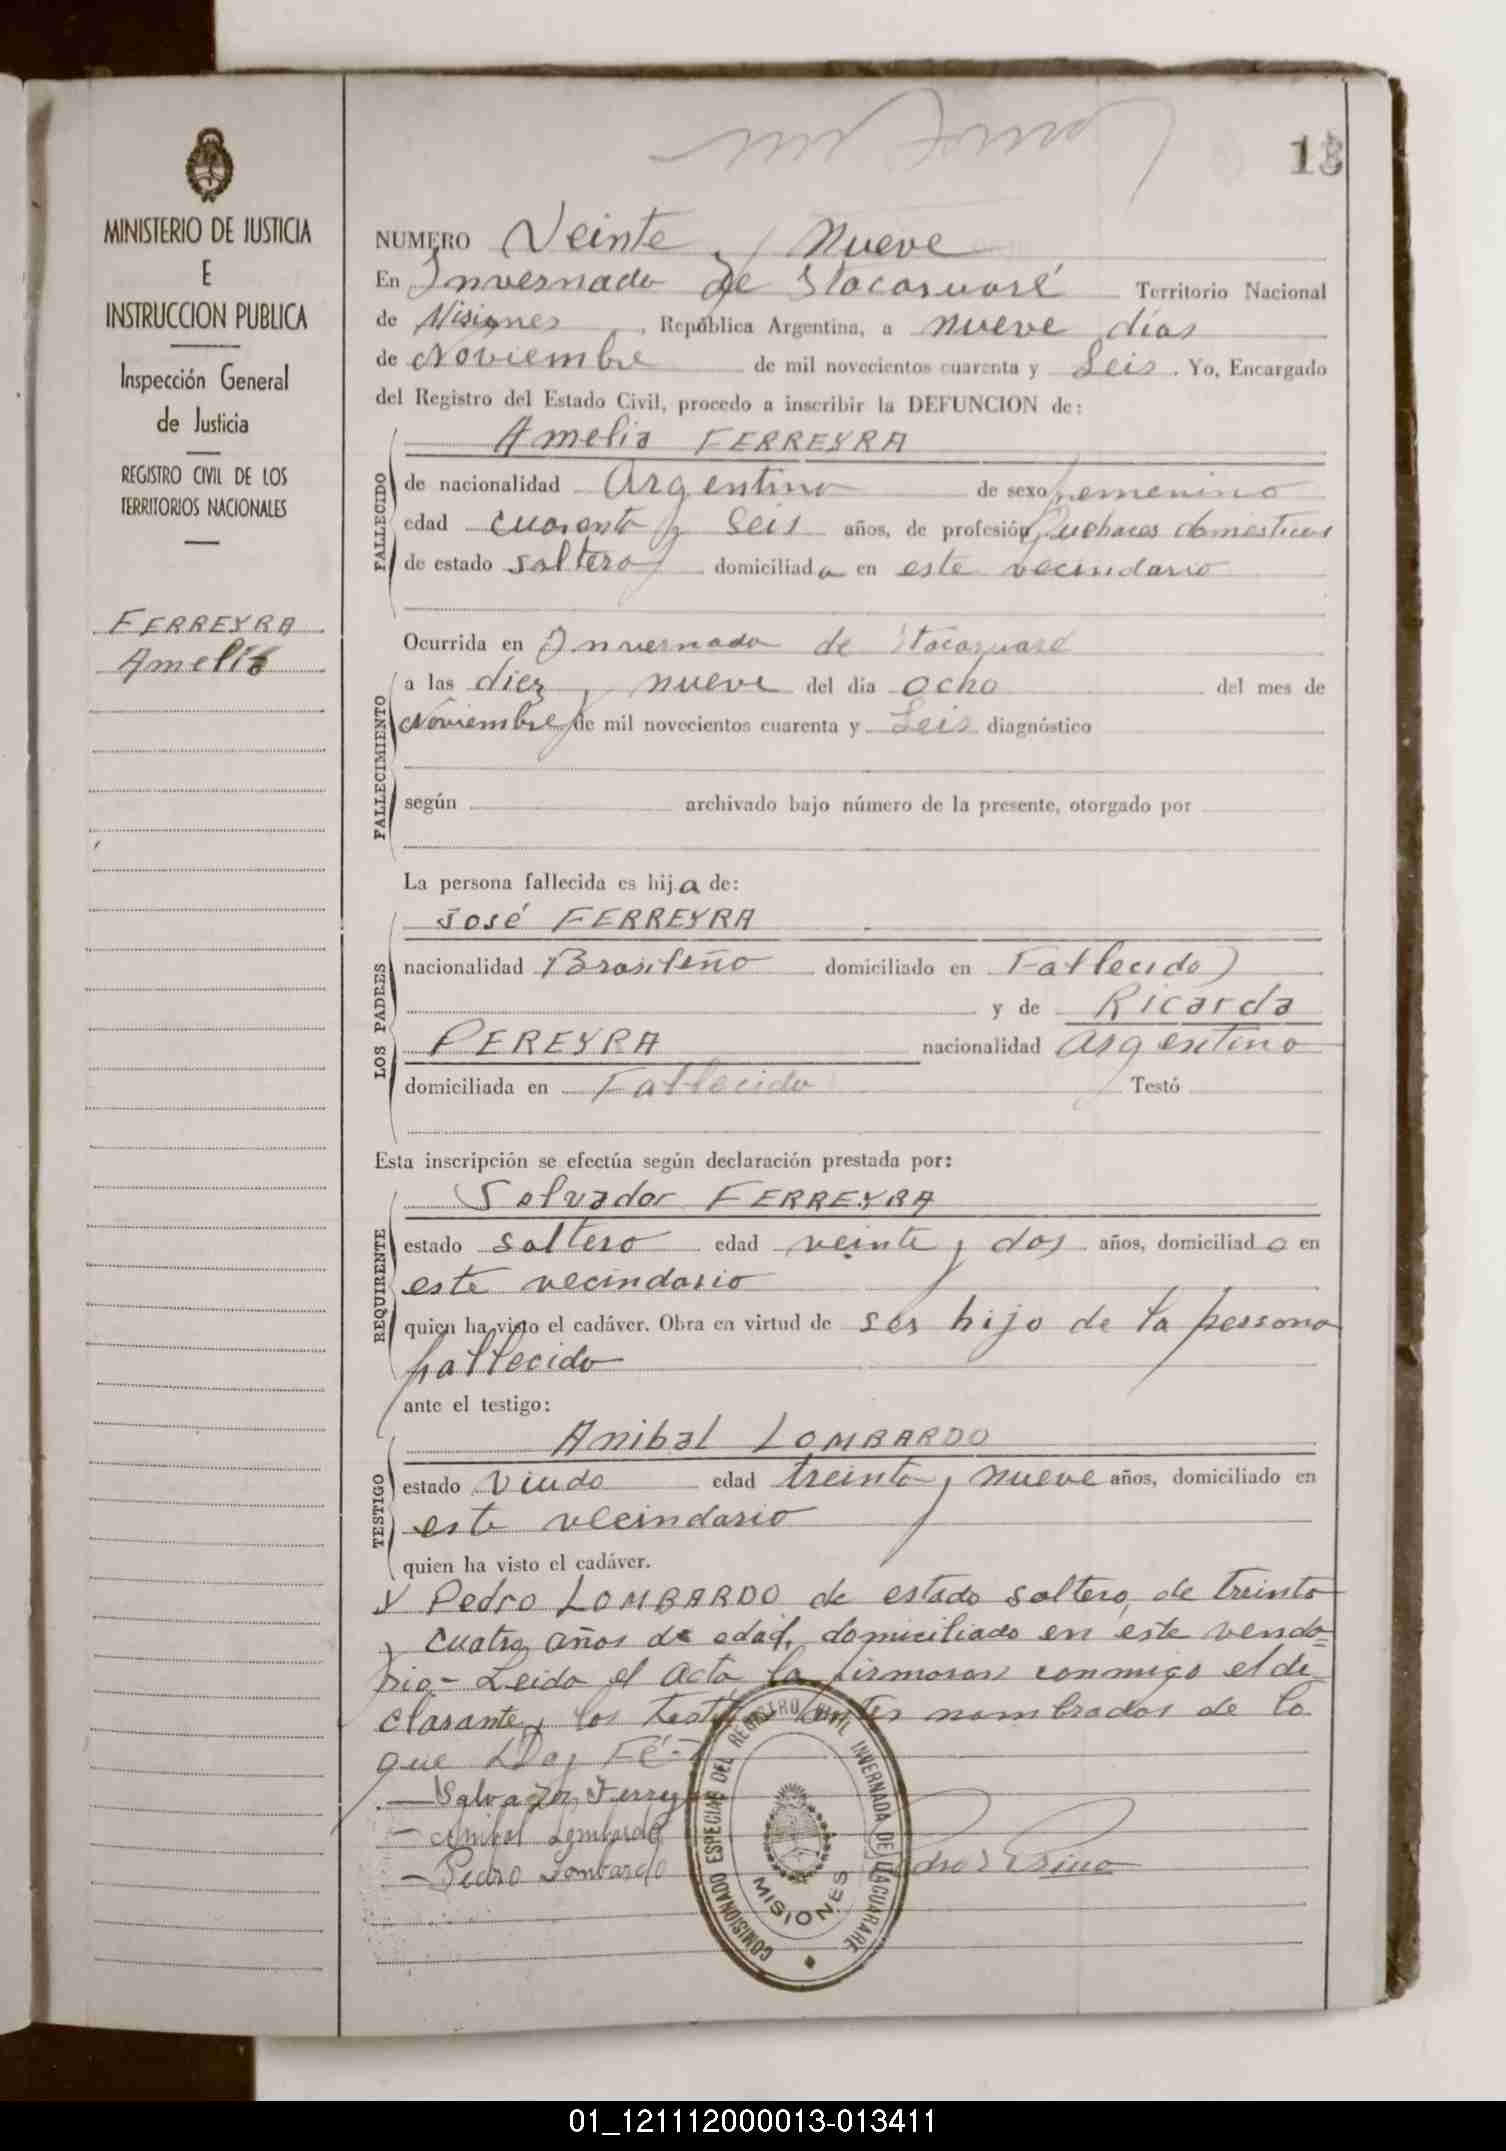 13
MINISTERIO DE JUSTICIA
E
INSTRUCCION PUBLICA
Inspección General
de Justicia
REGISTRO CIVIL DE LOS
TERRITORIOS NACIONALES
FERREYRA
Amelia
NUMERO Veinte y nueve
En Invernada de Itacaruaré Territorio Nacional
de Misiones, República Argentina, a nueve días
de Noviembre de mil novecientos cuarenta y Seis. Yo, Encargado
del Registro del Estado Civil, procedo a inscribir la DEFUNCION de:
FALLECIDO
Amelia FERREYRA
de nacionalidad Argentina de sexo femenino
edad cuarenta y Seis años, de profesión Quehaces domesticos
de estado saltera domiciliada en este vecindario
FALLECIMIENTO
Ocurrida en Invernada de Itacaruaré
a las diez y nueve del día ocho del mes de
Noviembre de mil novecientos cuarenta y Seis diagnóstico
según archivado bajo número de la presente, otorgado por
La persona fallecida es hija de:
LOS PADRES
José FERREYRA
nacionalidad Brasileño domiciliado en Fallecido
y de Ricarda
PEREYRA nacionalidad argentina
domiciliada en Fallecida Testó
Esta inscripción se efectúa según declaración prestada por:
REQUIRENTE
Salvador FERREYRA
estado saltero edad veinte y dos años, domiciliado en
este vecindario
quien ha visto el cadáver. Obra en virtud de ser hijo de la persona
fallecida
ante el testigo:
TESTIGO
Anibal LOMBARDO
estado Viudo edad treinta y nueve años, domiciliado en
este vecindario
quien ha visto el cadáver.
Y Pedro LOMBARDO de estado saltero, de treinta
y cuatro años de edad, domiciliado en este venda=
rio- Leida el acta la firmaron conmigo el de
clarante y los testigos antes nombrados de lo
que Doy Fé.-
Salvador Ferreyra
Anibal Lombardo
Pedro Lombardo
COMISIONADO ESPECIAL DEL REGISTRO CIVIL INVERNADA DE ITACUARARE
MISIONES
01_121112000013-013411